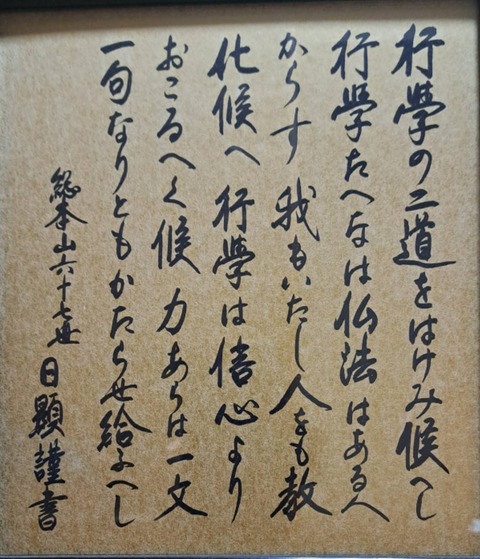 行學の二道をはけみ候へし
行學たへなは仏法はあるへ
からす 我もいたし人をも教
化候へ 行學は信心より
おこるへく候 力あらは一文
一句なりともかたらせ給ふへし
総本山六十七世 日顯謹書